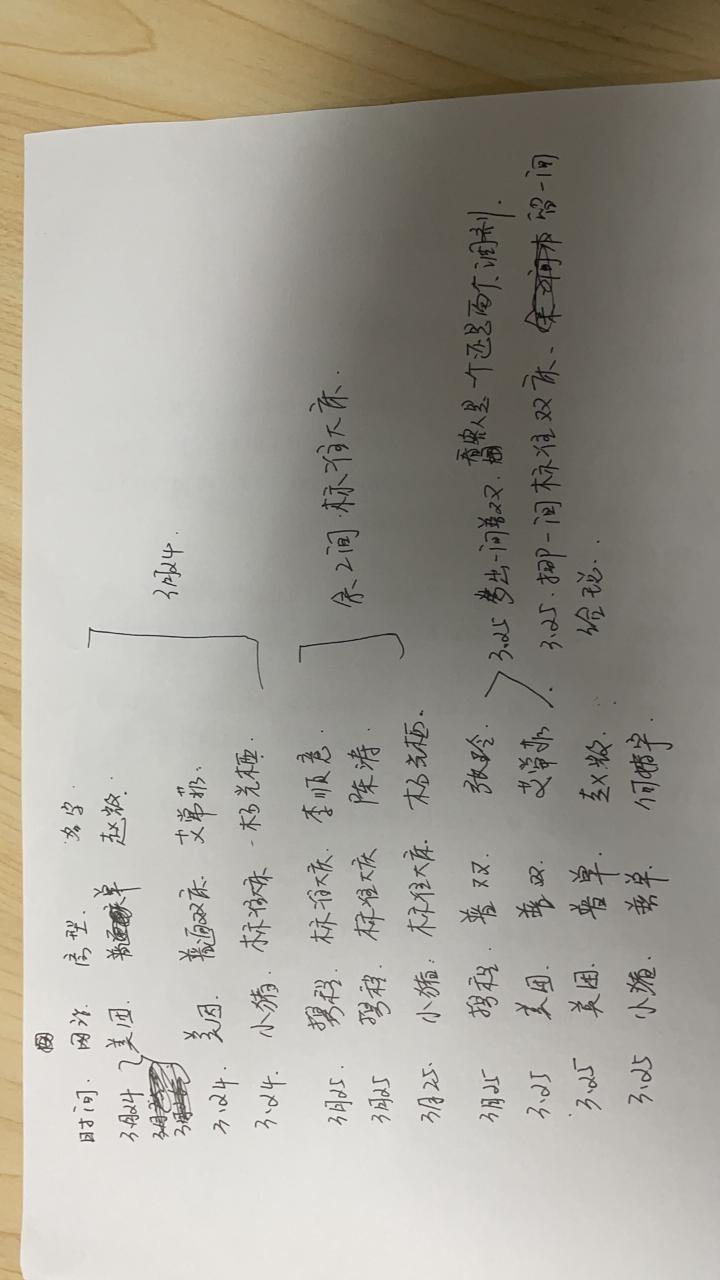 时间. 网站. 房型. 名字.
3月24 美团. 普单 赵敏. 3月24.
3.24. 美团 普通双床. 艾常那.
3.24. 小猪. 标准大床 - 杨光栖.
3月25. 携程. 标准大床. 李顺意 余2间.标准大床.
3月25 携程. 标准大床 陈涛.
3月25. 小猪. 标准大床. 杨光栖.
3月25 携程. 普双. 张玲. 3.25 多出一间普双. 看客人是一个还是两个调剂.
3.25 美团 普双. 艾常那. 3.25.挪一间标准双床、 留一间
3.25 美团. 普单. 赵敏. 给
3.25 小猪. 普单. 何